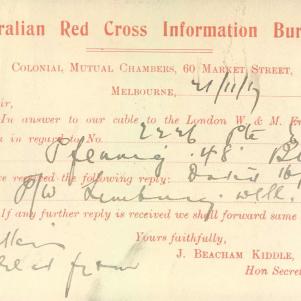 ralian Red Cross Information Bur
Colonial Mutual Chambers, 60 Market Street,
Melbourne, 21/11/17
ir,
In answer to our cable to the London W. & M. E
n in regard to No. 2226 Pte
Pfennig 48 B
ve received the following reply: Dated 16
P/W Limburg well.
If any further reply is received we shall forward same
Yours faithfully,
J. Beacham Kiddle,
from
Hon Secre